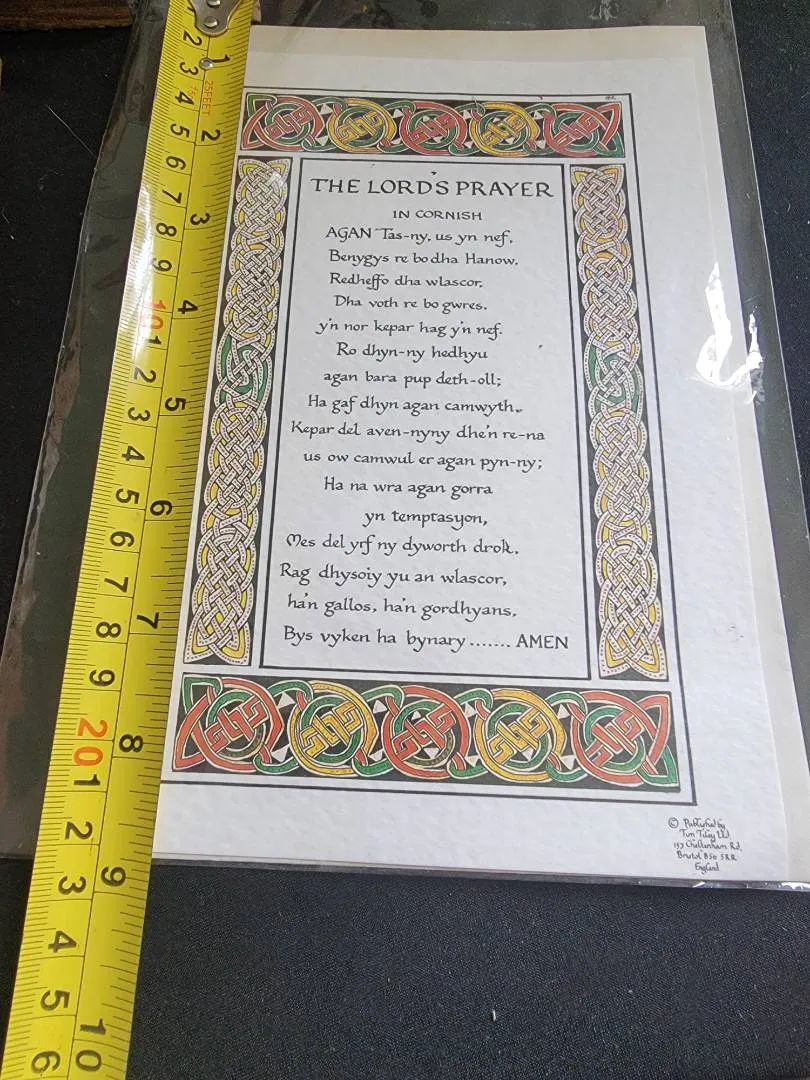 THE LORD'S PRAYER
IN CORNISH
AGAN Tas-ny, us yn nef,
Benygys re bo dha Hanow,
Redheffo dha wlascor,
Dha voth re bo gwres,
y'n nor kepar hag y'n nef.
Ro dhyn-ny hedhyu
agan bara pup deth-oll;
Ha gaf dhyn agan camwyth,
Kepar del aven-nyny dhe'n re-na
us ow camwul er agan pyn-ny;
Ha na wra agan gorra
yn temptasyon,
Mes delyrf ny dyworth drok.
Rag dhysoiy yu an wlascor,
ha'n gallos, ha'n gordhyans,
Bys vyken ha bynary ....... AMEN
© Published by
Tim Tiley Ltd.
157 Cheltenham Rd,
Bristol BS6 5RR
England
25FEET
1
2
3
4
5
6
7
8
9
10
2
3
4
5
6
7
8
9
10
1
2
3
4
5
6
7
8
9
20
1
2
3
4
5
6